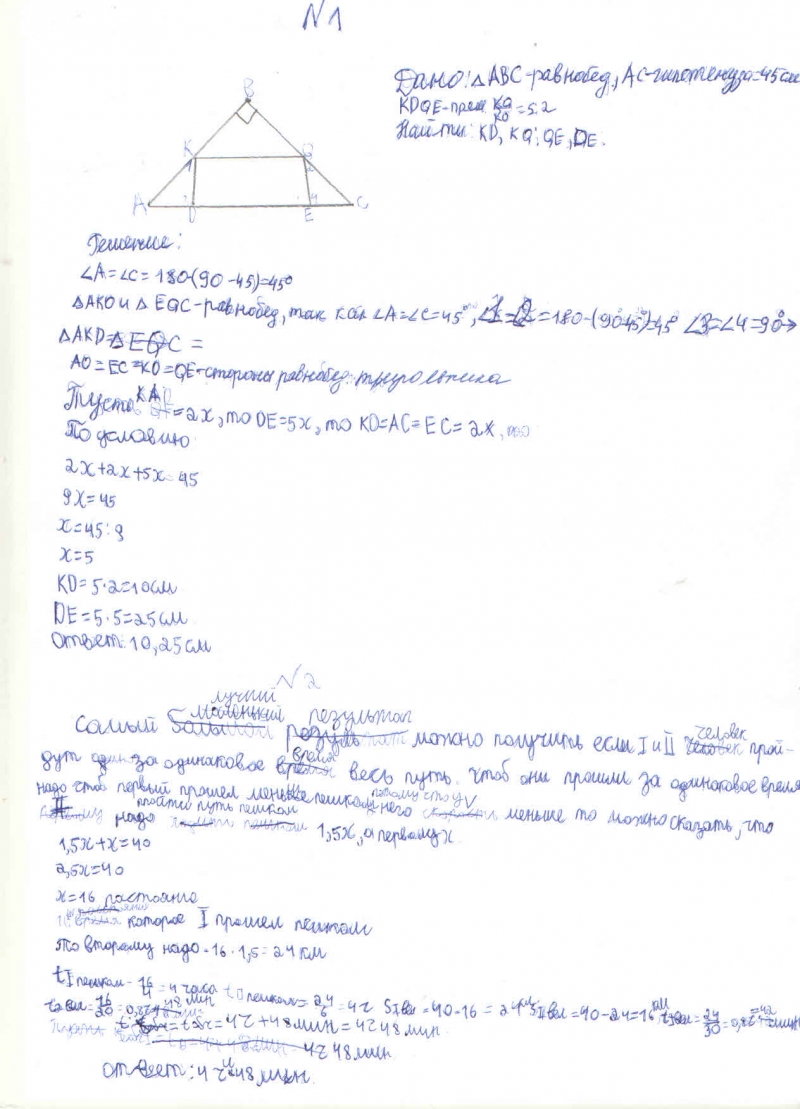 N1
Дано: △ABC-равнобед, AC-гипотенуза=45см
KDQE-прям KQ/KD=5:2
Найти: KD, KQ, QE, DE.
B
K Q
1 2
3 4
A D E C
Решение:
∠A=∠C=180-(90-45)=45°
△AKD и △EQC-равнобед, так как ∠A=∠C=45°, ∠1=∠2=180-(90°45°)=45° ∠3=∠4=90°→
△AKD=△EQC=
AD=EC=KD=QE-стороны равнобед. треугольника
Пусть KD=2x, то DE=5x, то KD=AC=EC=2x,
По условию
2x+2x+5x=45
9x=45
x=45:9
x=5
KD=5·2=10см
DE=5·5=25см
Ответ: 10,25см
N2
лучший
маленький результат
Самый большой результат можно получить если I и II человек прой-
дут один за одинаковое время весь путь. Чтоб они прошли за одинаковое время
надо чтоб первый прошел меньше пешком, потому что у него скорость меньше то можно сказать, что
II надо пройти путь пешком 1,5x, а первому x.
1,5x+x=40
2,5x=40
x=16 растояние
которое I прошел пешком
то второму надо-16·1,5=24км
t I пешком-16/4=4 часа t II пешком=24/6=4ч S I вел=40-16=24км S II вел=40-24=16км
t вел=16/20=0,8ч 48мин t вел=24/30=0,8ч
t=4ч+48мин=4ч48мин.
4ч48мин.
Ответ: 4ч 48мин.